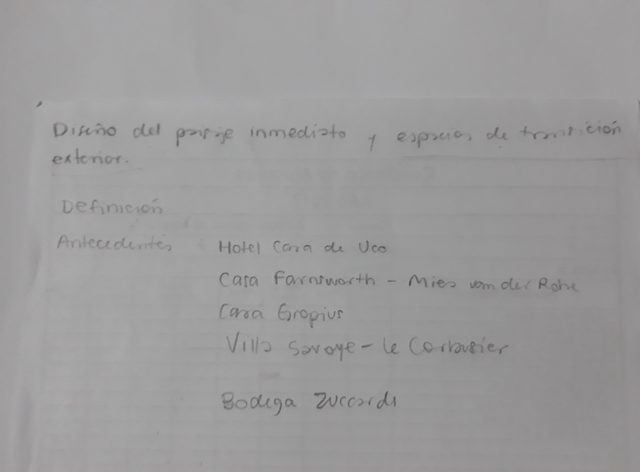 Diseño del paisaje inmediato y espacios de transición
exterior.
Definición
Antecedentes Hotel Casa de Uco
Casa Farnsworth - Mies van der Rohe
Casa Gropius
Villa Savoye - Le Corbusier
Bodega Zuccardi